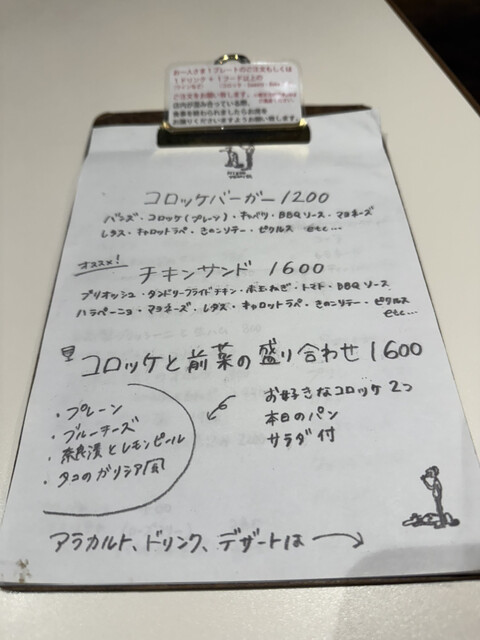 お一人さま1プレートのご注文もしくは
1ドリンク + 1フード以上の
ご注文をお願い致します。
店内が混み合っている際、
食事を終わられましたらお席を
お譲りくださいますようお願い致します。
コロッケバーガー 1200
バンズ・コロッケ(プレーン)・キャベツ・BBQソース・マヨネーズ
レタス・キャロットラペ・きのこソテー・ピクルス etc...
オススメ!
チキンサンド 1600
ブリオッシュ・タンドリーフライドチキン・赤玉ねぎ・トマト・BBQソース
ハラペーニョ・マヨネーズ・レタス・キャロットラペ・きのこソテー・ピクルス
etc...
コロッケと前菜の盛り合わせ 1600
お好きなコロッケ 2つ
本日のパン
サラダ付
・プレーン
・ブルーチーズ
・奈良漬とレモンピール
・タコのガリシア風
アラカルト、ドリンク、デザートは →